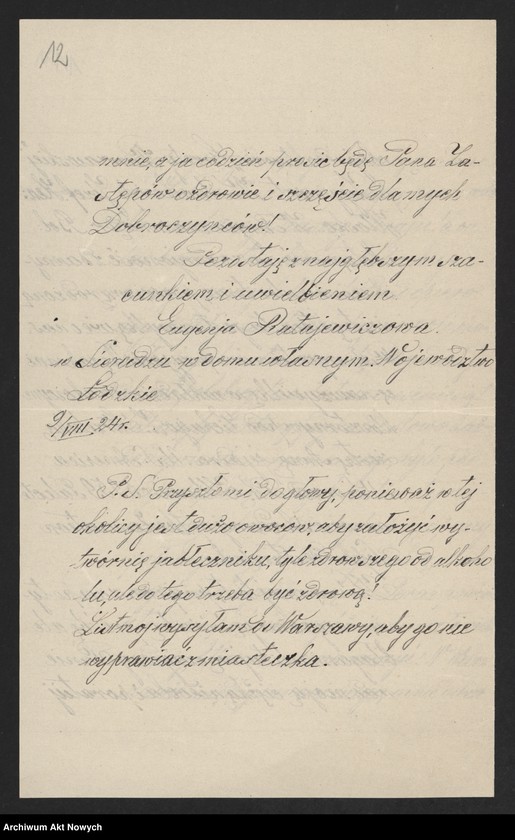 12
mnie, a ja codzień prosić będę Pana Za-
stępów o zdrowie i szczęście dla mych
Dobroczyńców!
Pozostaję z najgłębszym sza-
cunkiem i uwielbieniem
Eugenja Ratajewiczowa.
w Sieradzu w domu własnym. Województwo
Łódzkie
9/VIII 24 r.
P. S. Przyszło mi do głowy, ponieważ w tej
okolicy jest dużo owoców, aby założyć wy-
twórnię jabłeczniku, tyle zdrowszego od alkoho
lu, ale do tego trzeba być zdrową!
List mój wysyłam z Warszawy, aby go nie
wyprawiać z miasteczka.
Archiwum Akt Nowych